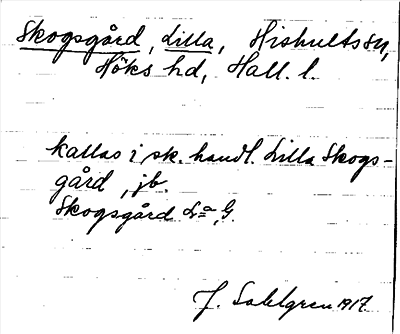 Skogsgård, Lilla, Hishults sn,
Höks hd, Hall. l.
kallas i sk. handl. Lilla Skogs-
gård, jb.
Skogsgård L:a G.
J. Sahlgren 1917.